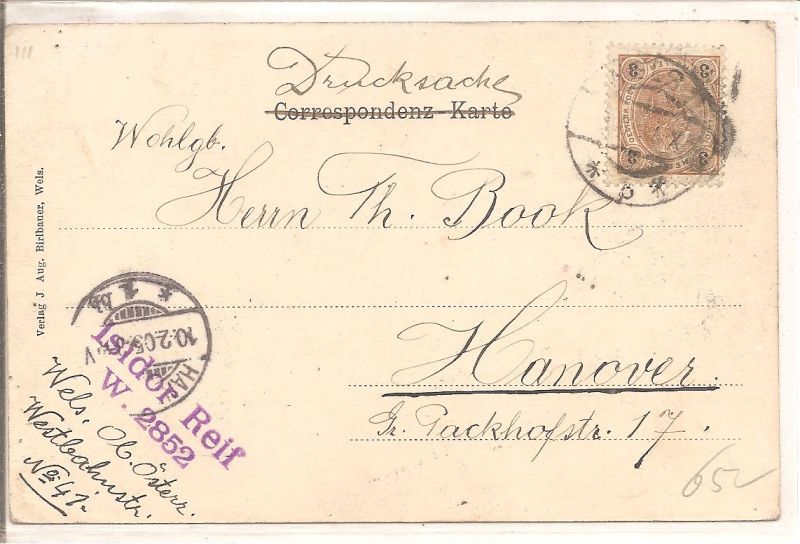 Drucksache
Correspondenz-Karte
Wohlgb.
Herrn Th. Book
Hanover.
Gr. Packhofstr. 17.
Verlag J. Aug. Birlbauer, Wels.
3
3
3
3
* 1 *
10.2.05
V
HAN
Isidor Reif
W. 2852
Wels, Ob. Österr.
Westbahnstr.
No: 47.
65